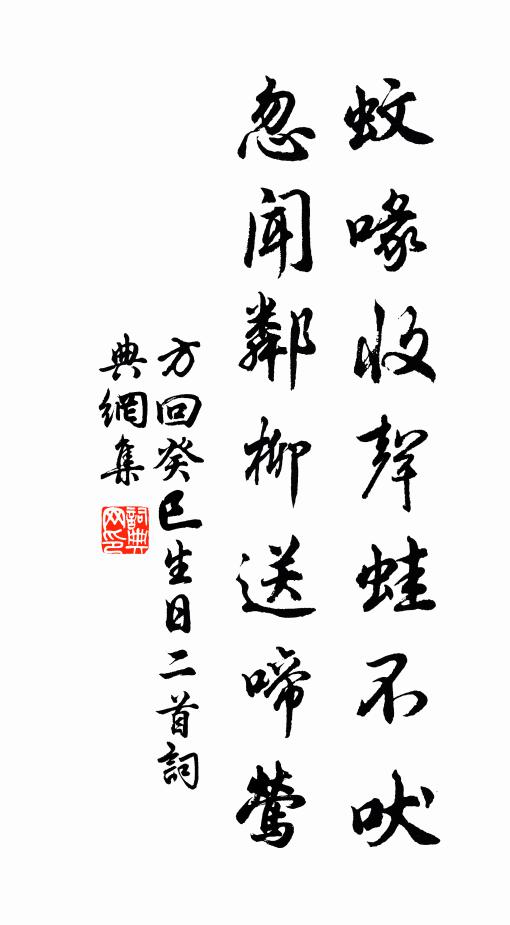 蚊喙收聲蛙不吠
忽聞鄰柳送啼鶯
方回癸巳生日二首詞
典網集
詞典
网印